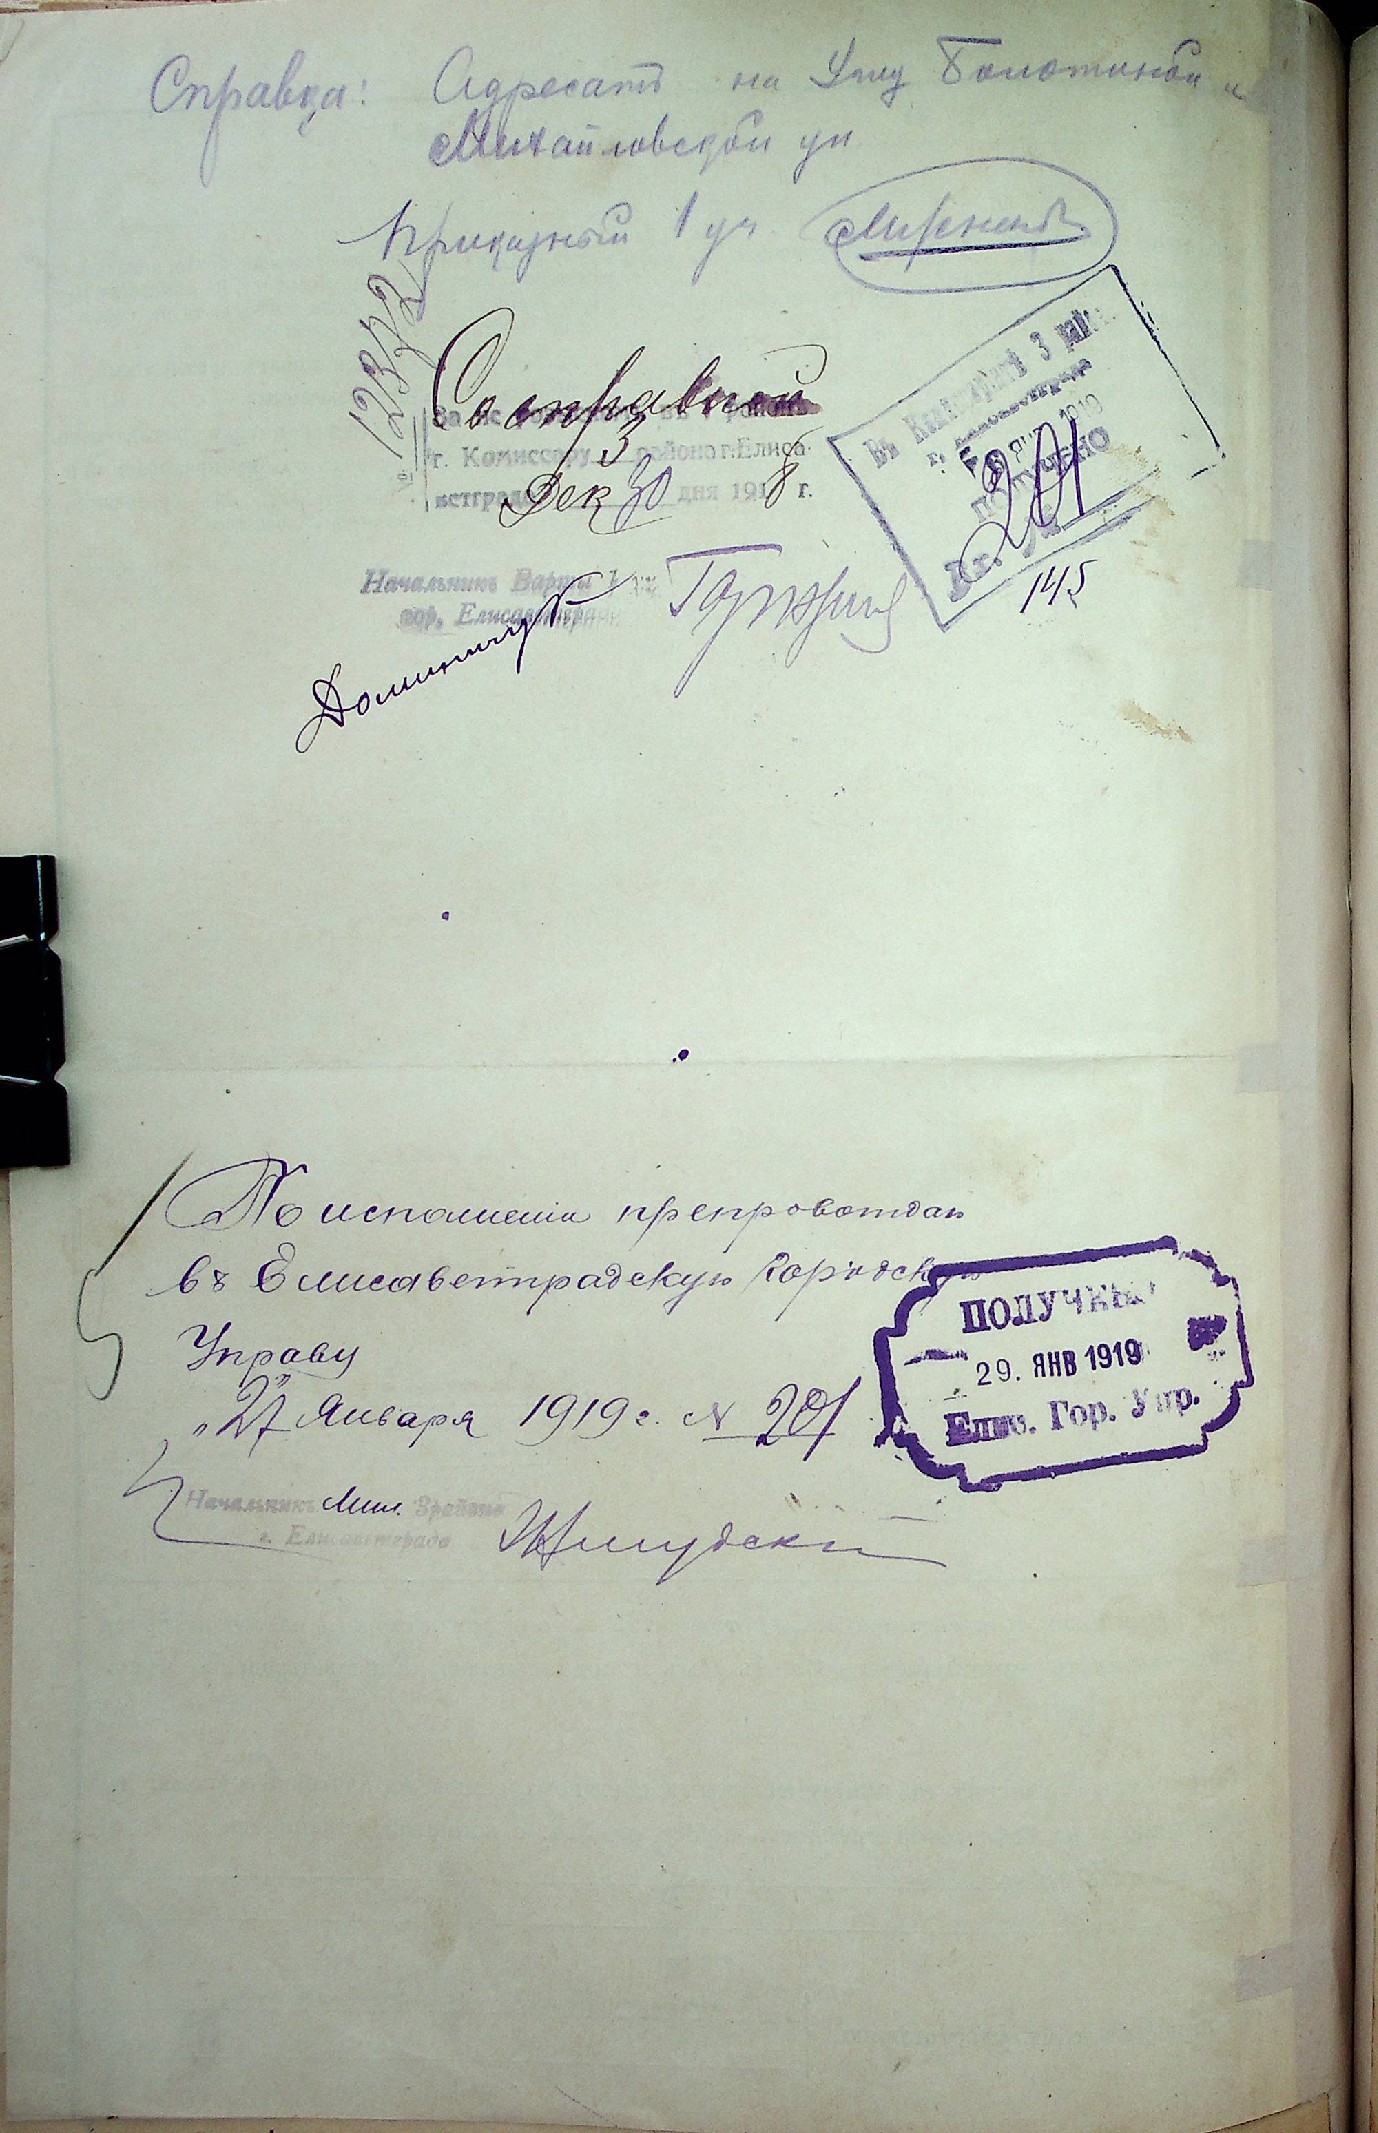 Справка: Адресатъ на углу Болотиной и
Михайловской ул
1 уч.
12372
Со справкой
г. Комиссару 3 района г. Елиса-
ветграда Дек 30 дня 1918 г.
Въ Канцелярiи 3 района
г. Елисаветграда
1919
ПОЛУЧЕНО
Вх. № 201
145
Начальникъ Варты 1
гор. Елисаветграда
По исполненiи препровождаю
въ Елисаветградскую Городскую
Управу
"27" Января 1919 г. № 201
ПОЛУЧЕНО
29. ЯНВ 1919
Елис. Гор. Упр.
Начальникъ Мил. 3 района
г. Елисаветграда